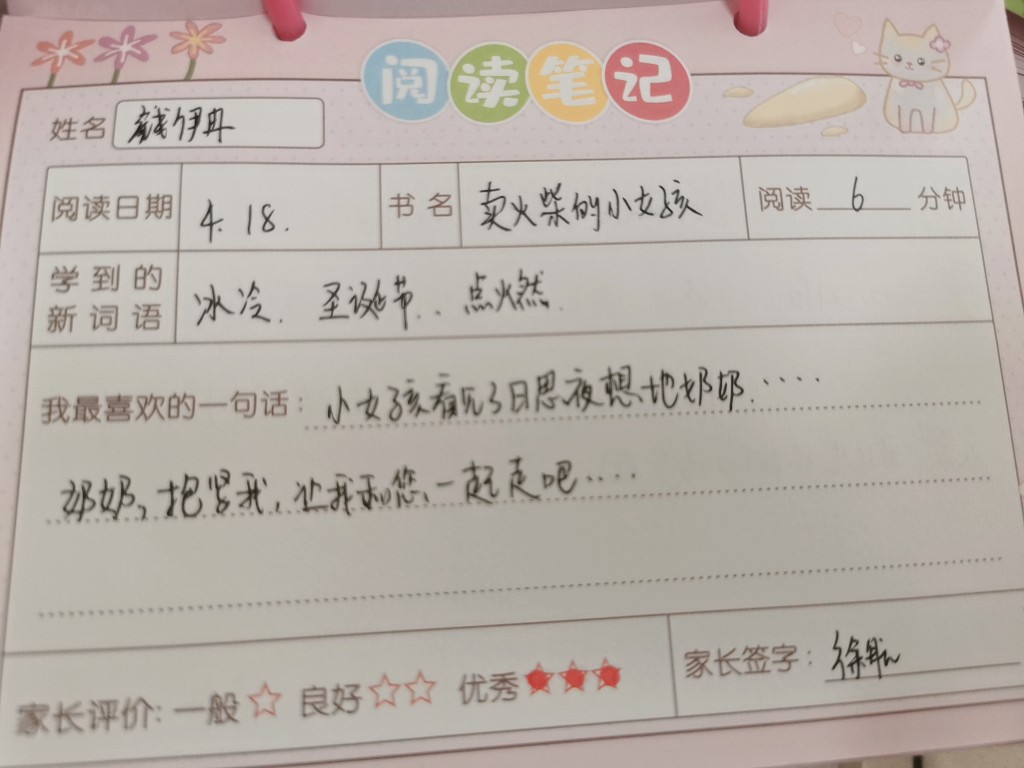 阅读笔记
姓名 钱伊冉
阅读日期 4.18. 书名 卖火柴的小女孩 阅读 6 分钟
学到的
新词语 冰冷. 圣诞节.. 点燃.
我最喜欢的一句话: 小女孩看见了日思夜想地奶奶.····
奶奶, 抱紧我, 让我和您一起走吧····
家长评价: 一般☆ 良好☆☆ 优秀★★★ 家长签字: 徐